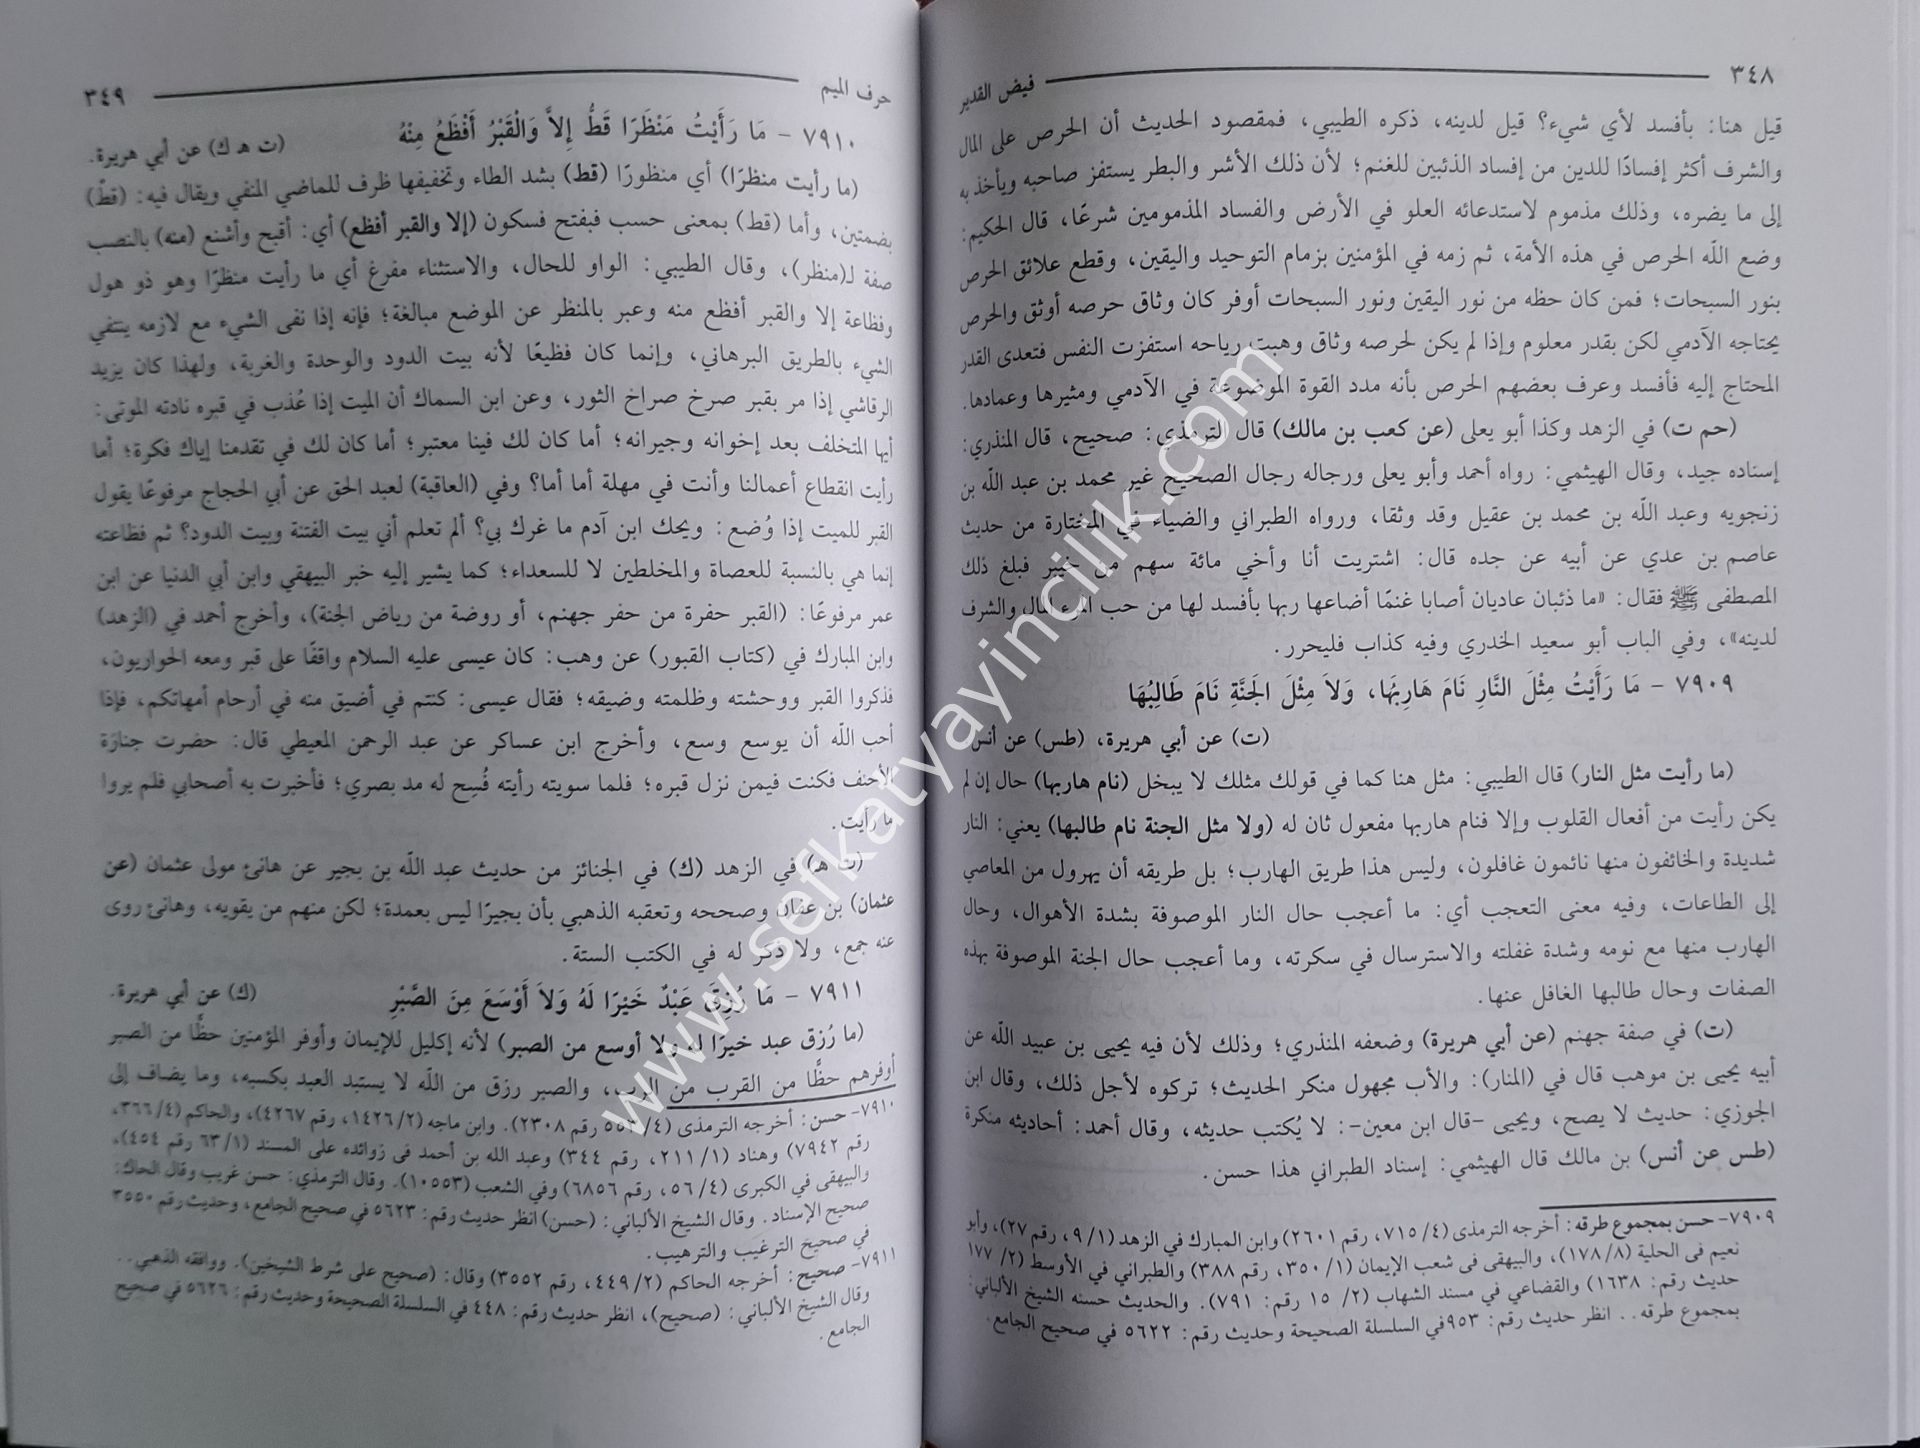 ٣٤٨
فيض القدير
قيل هنا: بأفسد لأي شيء؟ قيل لدينه، ذكره الطيبي، فمقصود الحديث أن الحرص على المال
والشرف أكثر إفسادًا للدين من إفساد الذئبين للغنم؛ لأن ذلك الأشر والبطر يستفز صاحبه ويأخذ به
إلى ما يضره، وذلك مذموم لاستدعائه العلو في الأرض والفساد المذمومين شرعًا، قال الحكيم:
وضع اللّه الحرص في هذه الأمة، ثم زمه في المؤمنين بزمام التوحيد واليقين، وقطع علائق الحرص
بنور السبحات؛ فمن كان حظه من نور اليقين ونور السبحات أوفر كان وثاق حرصه أوثق والحرص
يحتاجه الآدمي لكن بقدر معلوم وإذا لم يكن لحرصه وثاق وهبت رياحه استفزت النفس فتعدى القدر
المحتاج إليه فأفسد وعرف بعضهم الحرص بأنه مدد القوة الموضوعة في الآدمي ومثيرها وعمادها.
(حم ت) في الزهد وكذا أبو يعلى (عن كعب بن مالك) قال الترمذي: صحيح، قال المنذري:
إسناده جيد، وقال الهيثمي: رواه أحمد وأبو يعلى ورجاله رجال الصحيح غير محمد بن عبد اللّه بن
زنجويه وعبد اللّه بن محمد بن عقيل وقد وثقا، ورواه الطبراني والضياء في المختارة من حديث
عاصم بن عدي عن أبيه عن جده قال: اشتريت أنا وأخي مائة سهم من خيبر فبلغ ذلك
المصطفى ﷺ فقال: «ما ذئبان عاديان أصابا غنمًا أضاعها ربها بأفسد لها من حب المرء المال والشرف
لدينه»، وفي الباب أبو سعيد الخدري وفيه كذاب فليحرر.
٧٩٠٩ - مَا رَأَيْتُ مِثْلَ النَّارِ نَامَ هَارِبُهَا، وَلاَ مِثْلَ الجَنَّةِ نَامَ طَالِبُهَا
(ت) عن أبي هريرة، (طس) عن أنس
(ما رأيت مثل النار) قال الطيبي: مثل هنا كما في قولك مثلك لا يبخل (نام هاربها) حال إن لم
يكن رأيت من أفعال القلوب وإلا فنام هاربها مفعول ثان له (ولا مثل الجنة نام طالبها) يعني: النار
شديدة والخائفون منها نائمون غافلون، وليس هذا طريق الهارب؛ بل طريقه أن يهرول من المعاصي
إلى الطاعات، وفيه معنى التعجب أي: ما أعجب حال النار الموصوفة بشدة الأهوال، وحال
الهارب منها مع نومه وشدة غفلته والاسترسال في سكرته، وما أعجب حال الجنة الموصوفة بهذه
الصفات وحال طالبها الغافل عنها.
(ت) في صفة جهنم (عن أبي هريرة) وضعفه المنذري؛ وذلك لأن فيه يحيى بن عبيد اللّه عن
أبيه يحيى بن موهب قال في (المنار): والأب مجهول منكر الحديث؛ تركوه لأجل ذلك، وقال ابن
الجوزي: حديث لا يصح، ويحيى -قال ابن معين-: لا يُكتب حديثه، وقال أحمد: أحاديثه منكرة
(طس عن أنس) بن مالك قال الهيثمي: إسناد الطبراني هذا حسن.
٧٩٠٩- حسن بمجموع طرقه: أخرجه الترمذى (٤/ ٧١٥، رقم ٢٦٠١) وابن المبارك في الزهد (١/ ٩، رقم ٢٧)، وأبو
نعيم فى الحلية (٨/ ١٧٨)، والبيهقى فى شعب الإيمان (١/ ٣٥٠، رقم ٣٨٨) والطبراني في الأوسط (٢/ ١٧٧
حديث رقم: ١٦٣٨) والقضاعي في مسند الشهاب (٢/ ١٥ رقم: ٧٩١). والحديث حسنه الشيخ الألباني:
بمجموع طرقه.. انظر حديث رقم: ٩٥٣في السلسلة الصحيحة وحديث رقم: ٥٦٢٢ في صحيح الجامع.
حرف الميم
٣٤٩
٧٩١٠ - مَا رَأَيْتُ مَنْظَرًا قَطُّ إِلاَّ وَالْقَبْرُ أَفْظَعُ مِنْهُ (ت هـ ك) عن أبي هريرة.
(ما رأيت منظرًا) أي منظورًا (قط) بشد الطاء وتخفيفها ظرف للماضي المنفي ويقال فيه: (قط)
بضمتين، وأما (قط) بمعنى حسب فبفتح فسكون (إلا والقبر أفظع) أي: أقبح وأشنع (منه) بالنصب
صفة لـ(منظر)، وقال الطيبي: الواو للحال، والاستثناء مفرغ أي ما رأيت منظرًا وهو ذو هول
وفظاعة إلا والقبر أفظع منه وعبر بالمنظر عن الموضع مبالغة؛ فإنه إذا نفى الشيء مع لازمه ينتفي
الشيء بالطريق البرهاني، وإنما كان فظيعًا لأنه بيت الدود والوحدة والغربة، ولهذا كان يزيد
الرقاشي إذا مر بقبر صرخ صراخ الثور، وعن ابن السماك أن الميت إذا عُذب في قبره نادته الموتى:
أيها المتخلف بعد إخوانه وجيرانه؛ أما كان لك فينا معتبر؛ أما كان لك في تقدمنا إياك فكرة؛ أما
رأيت انقطاع أعمالنا وأنت في مهلة أما أما؟ وفي (العاقبة) لعبد الحق عن أبي الحجاج مرفوعًا يقول
القبر للميت إذا وُضع: ويحك ابن آدم ما غرك بي؟ ألم تعلم أني بيت الفتنة وبيت الدود؟ ثم فظاعته
إنما هي بالنسبة للعصاة والمخلطين لا للسعداء؛ كما يشير إليه خبر البيهقي وابن أبي الدنيا عن ابن
عمر مرفوعًا: (القبر حفرة من حفر جهنم، أو روضة من رياض الجنة)، وأخرج أحمد في (الزهد)
وابن المبارك في (كتاب القبور) عن وهب: كان عيسى عليه السلام واقفًا على قبر ومعه الحواريون،
فذكروا القبر ووحشته وظلمته وضيقه؛ فقال عيسى: كنتم في أضيق منه في أرحام أمهاتكم، فإذا
أحب اللّه أن يوسع وسع، وأخرج ابن عساكر عن عبد الرحمن المعيطي قال: حضرت جنازة
الأحنف فكنت فيمن نزل قبره؛ فلما سويته رأيته فُسِح له مد بصري؛ فأخبرت به أصحابي فلم يروا
ما رأيت.
(ت هـ) في الزهد (ك) في الجنائز من حديث عبد اللّه بن بجير عن هانئ مولى عثمان (عن
عثمان) بن عفان وصححه وتعقبه الذهبي بأن بجيرًا ليس بعمدة؛ لكن منهم من يقويه، وهانئ روى
عنه جمع، ولا ذكر له في الكتب الستة.
٧٩١١ - مَا رُزِقَ عَبْدٌ خَيْرًا لَهُ وَلاَ أَوْسَعَ مِنَ الصَّبْرِ (ك) عن أبي هريرة.
(ما رُزق عبد خيرًا له ولا أوسع من الصبر) لأنه إكليل للإيمان وأوفر المؤمنين حظًّا من الصبر
أوفرهم حظًّا من القرب من الرب، والصبر رزق من اللّه لا يستبد العبد بكسبه، وما يضاف إلى
٧٩١٠- حسن: أخرجه الترمذى (٤/ ٥٥٣ رقم ٢٣٠٨). وابن ماجه (٢/ ١٤٢٦، رقم ٤٢٦٧)، والحاكم (٤/ ٣٦٦،
رقم ٧٩٤٢) وهناد (١/ ٢١١، رقم ٣٤٤) وعبد الله بن أحمد فى زوائده على المسند (١/ ٦٣ رقم ٤٥٤)،
والبيهقى في الكبرى (٤/ ٥٦، رقم ٦٨٥٦) وفي الشعب (١٠٥٥٣). وقال الترمذي: حسن غريب وقال الحاك:
صحيح الإسناد. وقال الشيخ الألباني: (حسن) انظر حديث رقم: ٥٦٢٣ في صحيح الجامع، وحديث رقم ٣٥٥٠
في صحيح الترغيب والترهيب.
٧٩١١- صحيح: أخرجه الحاكم (٢/ ٤٤٩، رقم ٣٥٥٢) وقال: (صحيح على شرط الشيخين). ووافقه الذهبي..
وقال الشيخ الألباني: (صحيح)، انظر حديث رقم: ٤٤٨ في السلسلة الصحيحة وحديث رقم: ٥٦٢٦ في صحيح
الجامع.
www.sefkatyayincilik.com